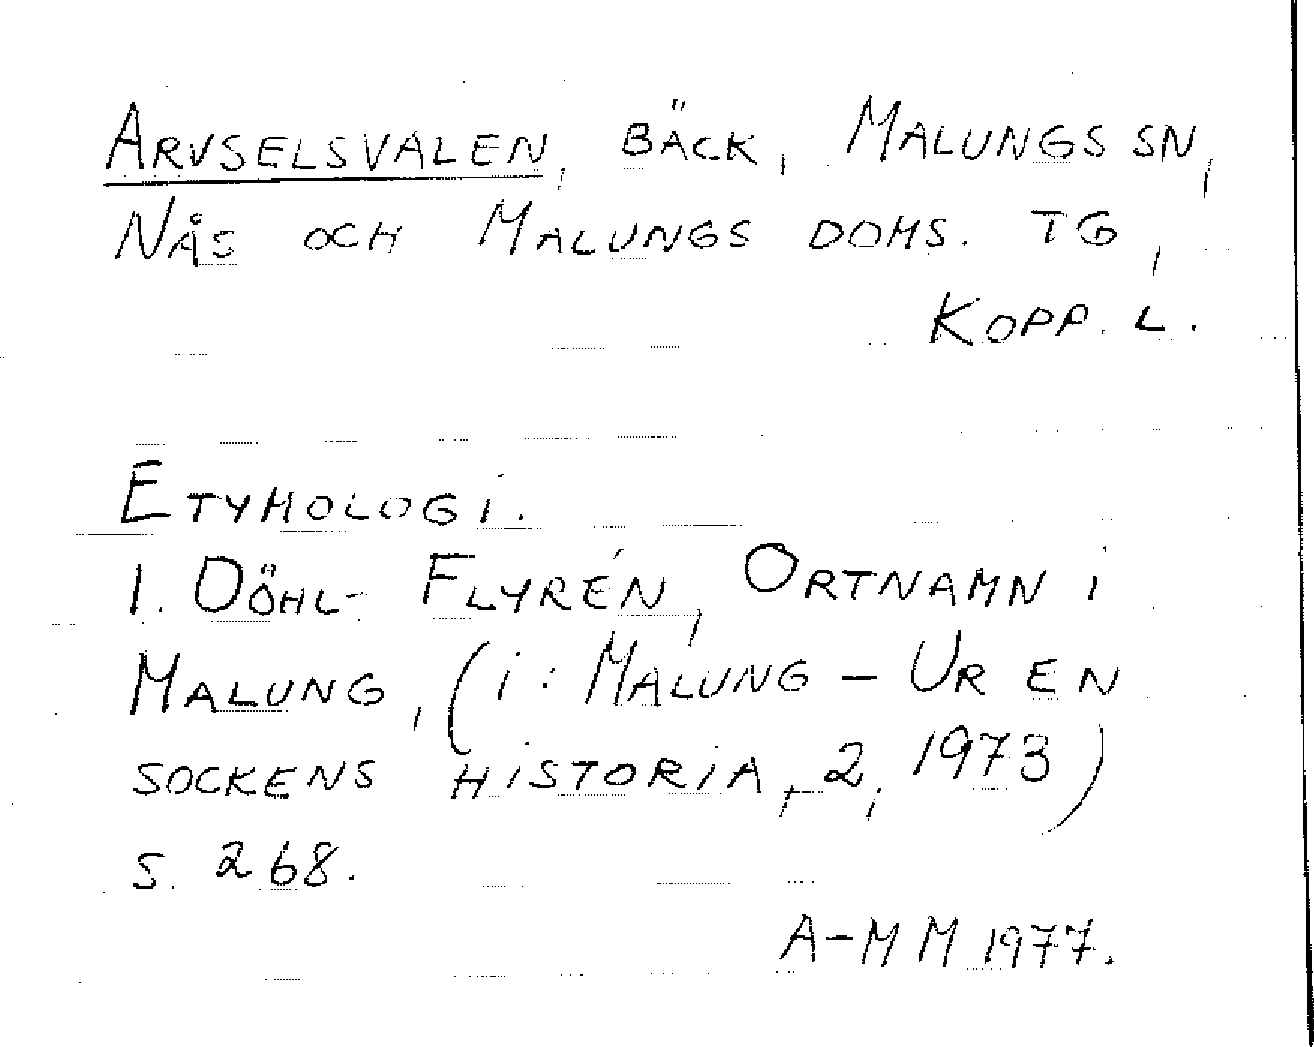 ARVSELSVALEN, BÄCK, MALUNGS SN,
NÅS OCH MALUNGS DOMS. TG,
KOPP. L.
ETYMOLOGI.
1. DÖHL-FLYRÉN, ORTNAMN I
MALUNG, (I: MALUNG – UR EN
SOCKENS HISTORIA, 2, 1973)
S. 268.
A-M M 1977.